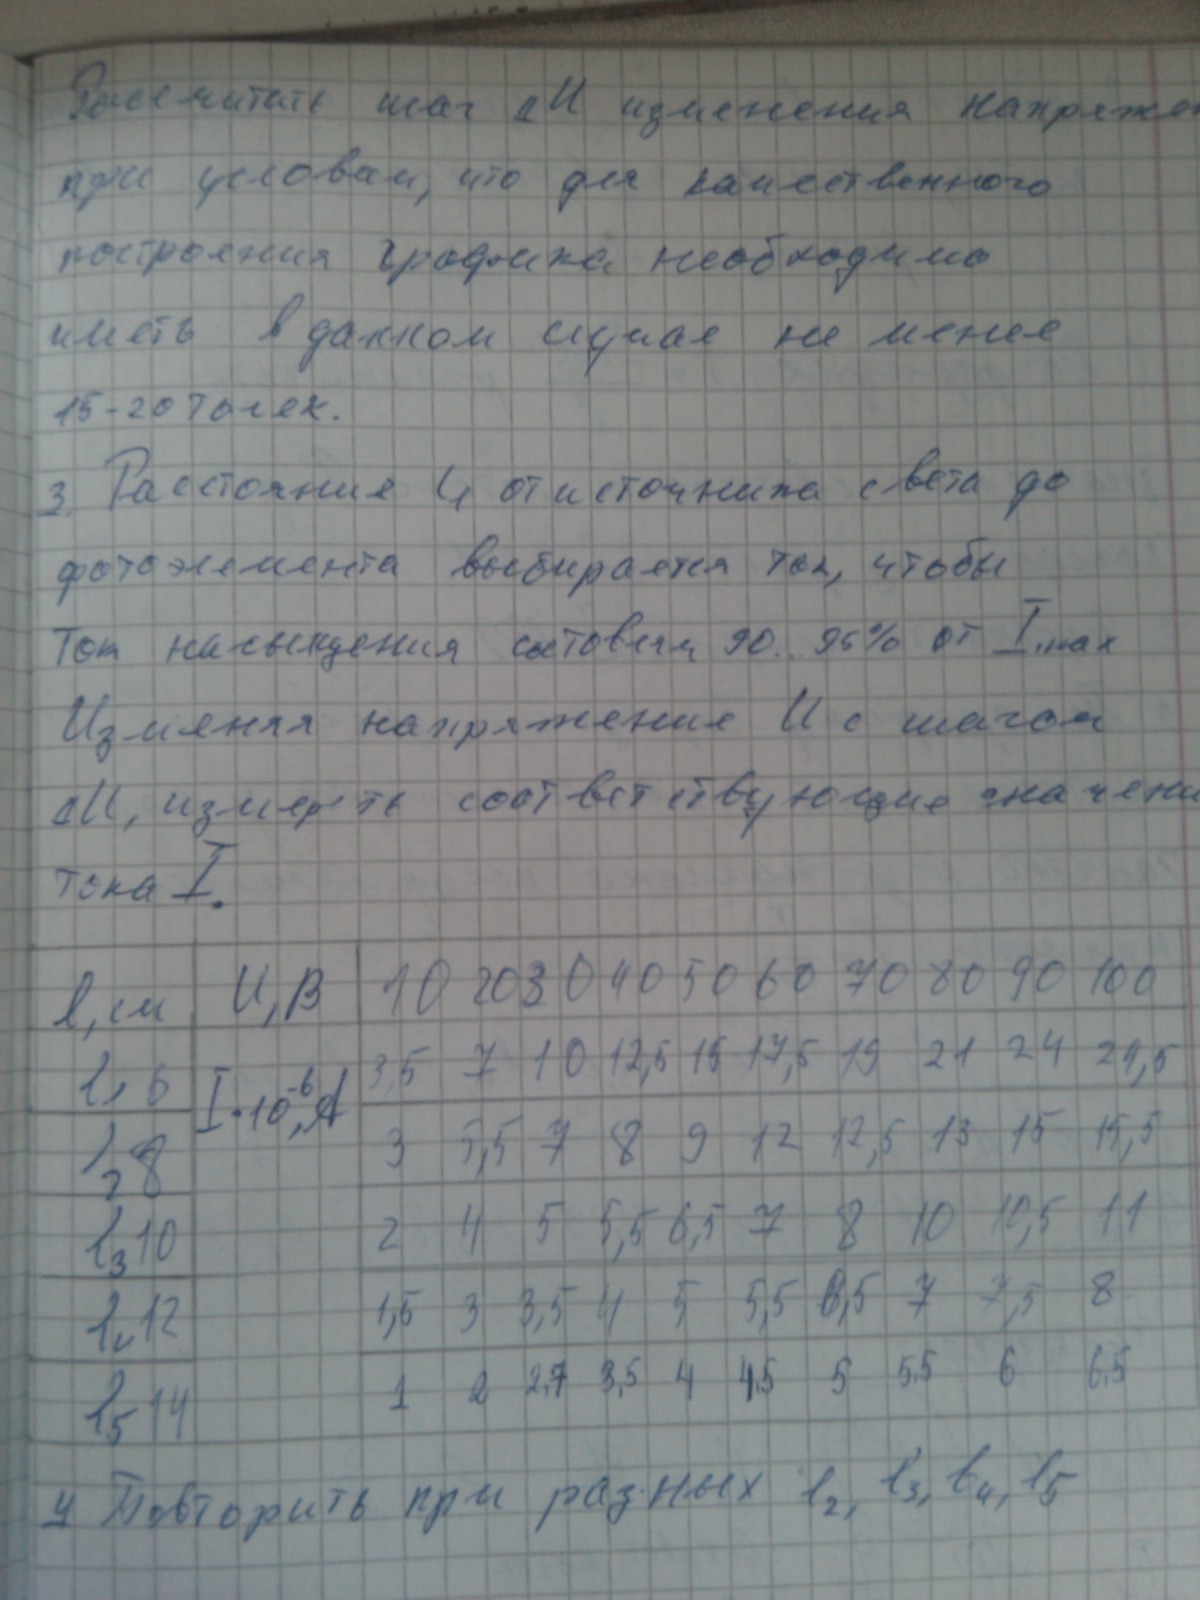 Рассчитать шаг ΔU изменения напряжен
при условии, что для качественного
построения графика необходимо
иметь в данном случае не менее
15-20 точек.
3. Расстояние l₁ от источника света до
фотоэлемента выбирается так, чтобы
ток насыщения составлял 90..95% от Imax
Изменяя напряжение U с шагом
ΔU, измерить соответствующие значени
тока I.
l, см U, В 10 20 30 40 50 60 70 80 90 100
l₁ 6 I·10⁻⁶, А 3,5 7 10 12,5 15 17,5 19 21 24 24,5
l₂ 8 3 5,5 7 8 9 12 12,5 13 15 15,5
l₃ 10 2 4 5 5,5 6,5 7 8 10 10,5 11
l₄ 12 1,5 3 3,5 4 5 5,5 6,5 7 7,5 8
l₅ 14 1 2 2,7 3,5 4 4,5 5 5,5 6 6,5
4 Повторить при разных l₂, l₃, l₄, l₅